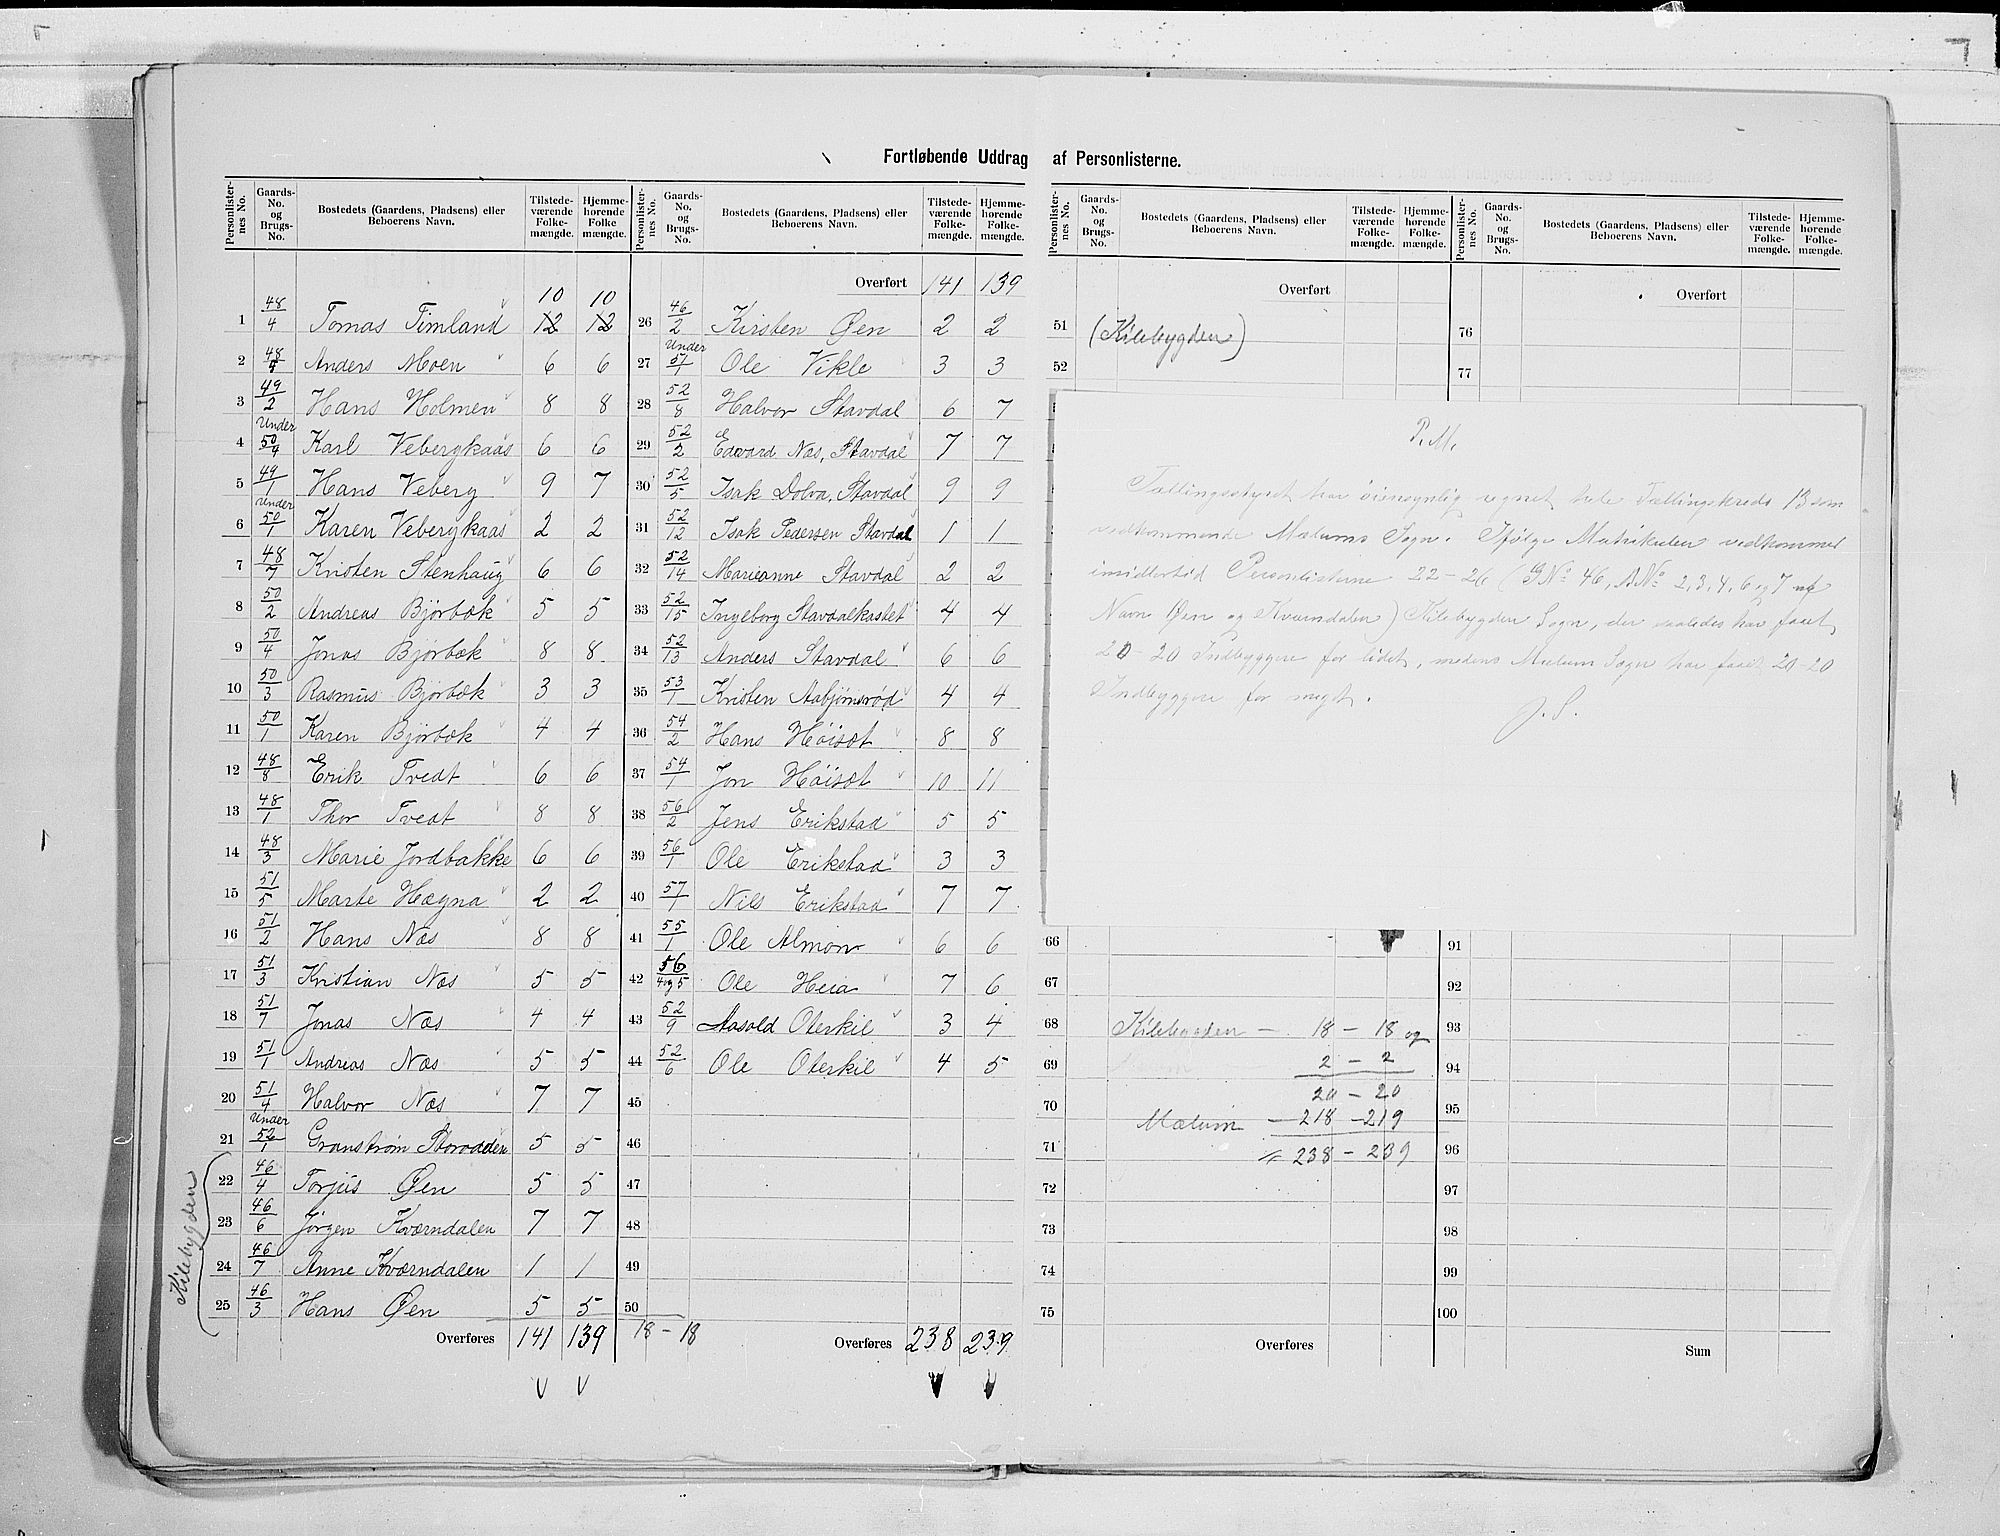 Fortløbende Uddrag af Personlisterne.
Personlister-nes No. Gaards-No. og Brugs-No. Bostedets (Gaardens, Pladsens) eller Beboerens Navn. Tilstede-værende Folke-mængde. Hjemme-hørende Folke mængde.
10 10
1 48/4 Tomas Timland 12 12
2 48/5 Anders Moen 6 6
3 49/2 Hans Holmen 8 8
4 Under 50/4 Karl Vebergkaas 6 6
5 49/1 Hans Veberg 9 7
6 Under 50/1 Karen Vebergkaas 2 2
7 48/7 Kristen Stenhaug 6 6
8 50/2 Andreas Bjørbæk 5 5
9 50/4 Jonas Bjørbæk 8 8
10 50/3 Rasmus Bjørbæk 3 3
11 50/1 Karen Bjørbæk 4 4
12 48/8 Erik Tvedt 6 6
13 48/1 Thor Tvedt 8 8
14 48/3 Marie Jordbakke 6 6
15 51/5 Marte Hægna 2 2
16 51/2 Hans Næs 8 8
17 51/3 Kristian Næs 5 5
18 51/7 Jonas Næs 4 4
19 51/1 Andreas Næs 5 5
20 51/4 Halvor Næs 7 7
21 Under 52/1 Granstrøm Storodden 5 5
Kilebygden
22 46/4 Torjus Øen 5 5
23 46/6 Jørgen Kværndalen 7 7
24 46/7 Anne Kværndalen 1 1
25 46/3 Hans Øen 5 5
Overføres 141 139
Personlister-nes No. Gaards-No. og Brugs-No. Bostedets (Gaardens, Pladsens) eller Beboerens Navn. Tilstede-værende Folke-mængde. Hjemme-hørende Folke-mængde.
Overført 141 139
26 46/2 Kirsten Øen 2 2
27 Under 51/1 Ole Vikle 3 3
28 52/8 Halvor Stavdal 6 7
29 52/2 Edvard Næs, Stavdal 7 7
30 52/5 Isak Dolva, Stavdal 9 9
31 52/12 Isak Pedersen Stavdal 1 1
32 52/14 Marieanne Stavdal 2 2
33 52/15 Ingeborg Stavdalkastet 4 4
34 52/13 Anders Stavdal 6 6
35 53/1 Kristen Aabjørnsrød 4 4
36 54/2 Hans Høisæt 8 8
37 54/1 Jon Høisæt 10 11
38 56/2 Jens Erikstad 5 5
39 56/1 Ole Erikstad 3 3
40 57/1 Nils Erikstad 7 7
41 55/1 Ole Almon 6 6
42 56/4 og 5 Ole Heia 7 6
43 52/9 Aasold Oterkil 3 4
44 52/6 Ole Oterkil 4 5
45
46
47
48
49
50
18 - 18 Overføres 238 239
Personlister-nes No. Gaards-No. og Brugs-No. Bostedets (Gaardens, Pladsens) eller Beboerens Navn. Tilstede-værende Folke-mængde. Hjemme-hørende Folke-mængde.
Overført
51 (Kilebygden)
52
P.M.
Tællingsstyret har øiensynlig regnet hele Tællingskreds 13 som
vedkommende Mælums Sogn. Ifølge Matrikulen vedkommer
imidlertid Personlisterne 22-26 (GNº 46, BNº 2, 3, 4, 6 og 7 af
Navn Øen og Kværndalen) Kilebygden Sogn, der saaledes har faaet
20-20 Indbyggere for lidet, medens Mælum Sogn har faaet 20-20
Indbyggere for meget.
J.S.
66
67
68 Kilebygden - 18 - 18 og
69 2 - 2
70 20 - 20
Mælum - 218 - 219
71 238 - 239
72
73
74
75
Overføres
Personlister-nes No. Gaards-No. og Brugs-No. Bostedets (Gaardens, Pladsens) eller Beboerens Navn. Tilstede-værende Folke-mængde. Hjemme-hørende Folke-mængde.
Overført
76
77
91
92
93
94
95
96
97
98
99
100
Sum